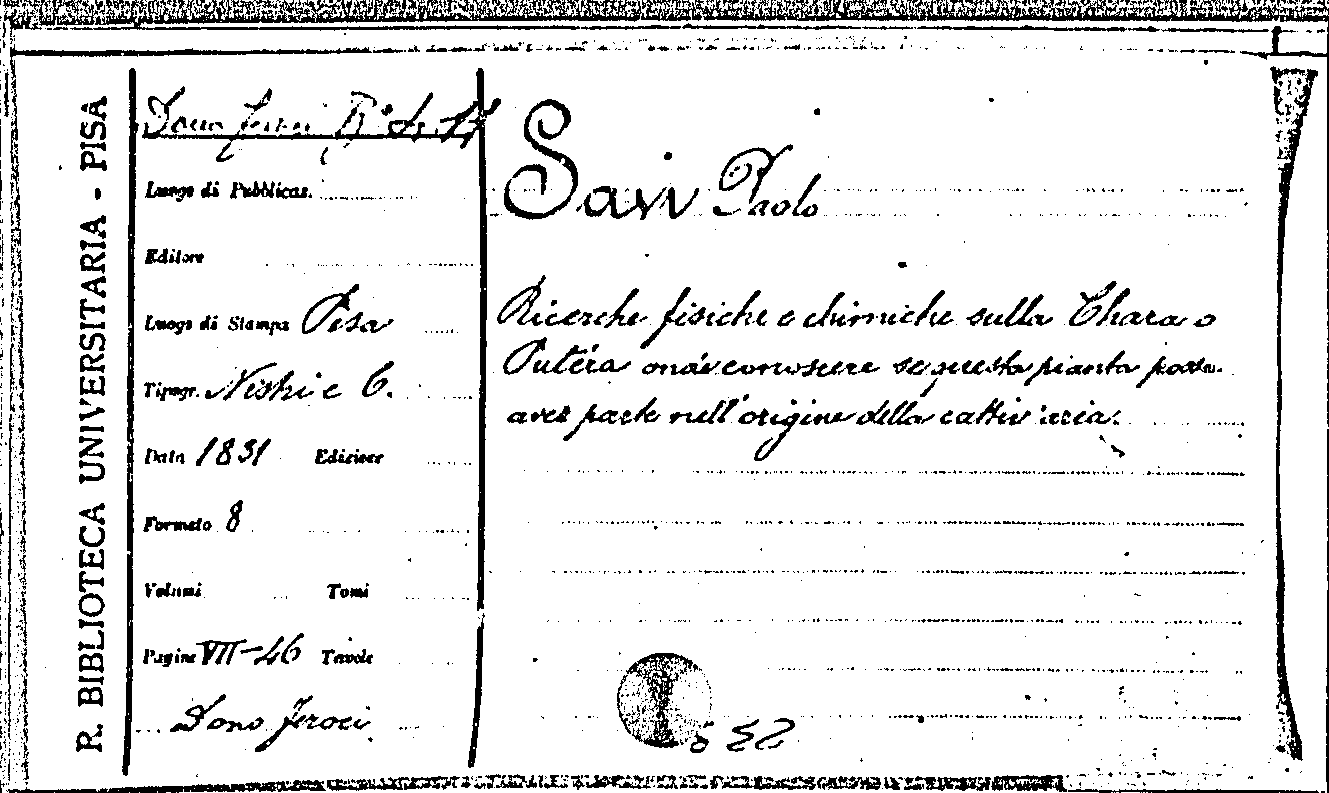 R. BIBLIOTECA UNIVERSITARIA - PISA
Dono Feroci B° 4. 17
Luogo di Pubblicaz.
Editore
Luogo di Stampa Pisa
Tipogr. Nistri e C.
Data 1831 Edizione
Formato 8
Volumi Tomi
Pagine VII-46 Tavole
Dono Feroci
Savi Paolo
Ricerche fisiche e chimiche sulla Chara o
Putéra conoscere se questa pianta possa
aver parte nell'origine della cattiv'aria.